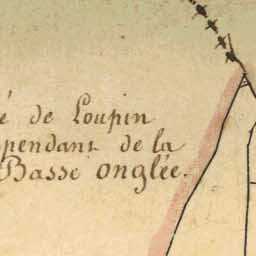 é de Loupin
pendant de la
Basse onglée.